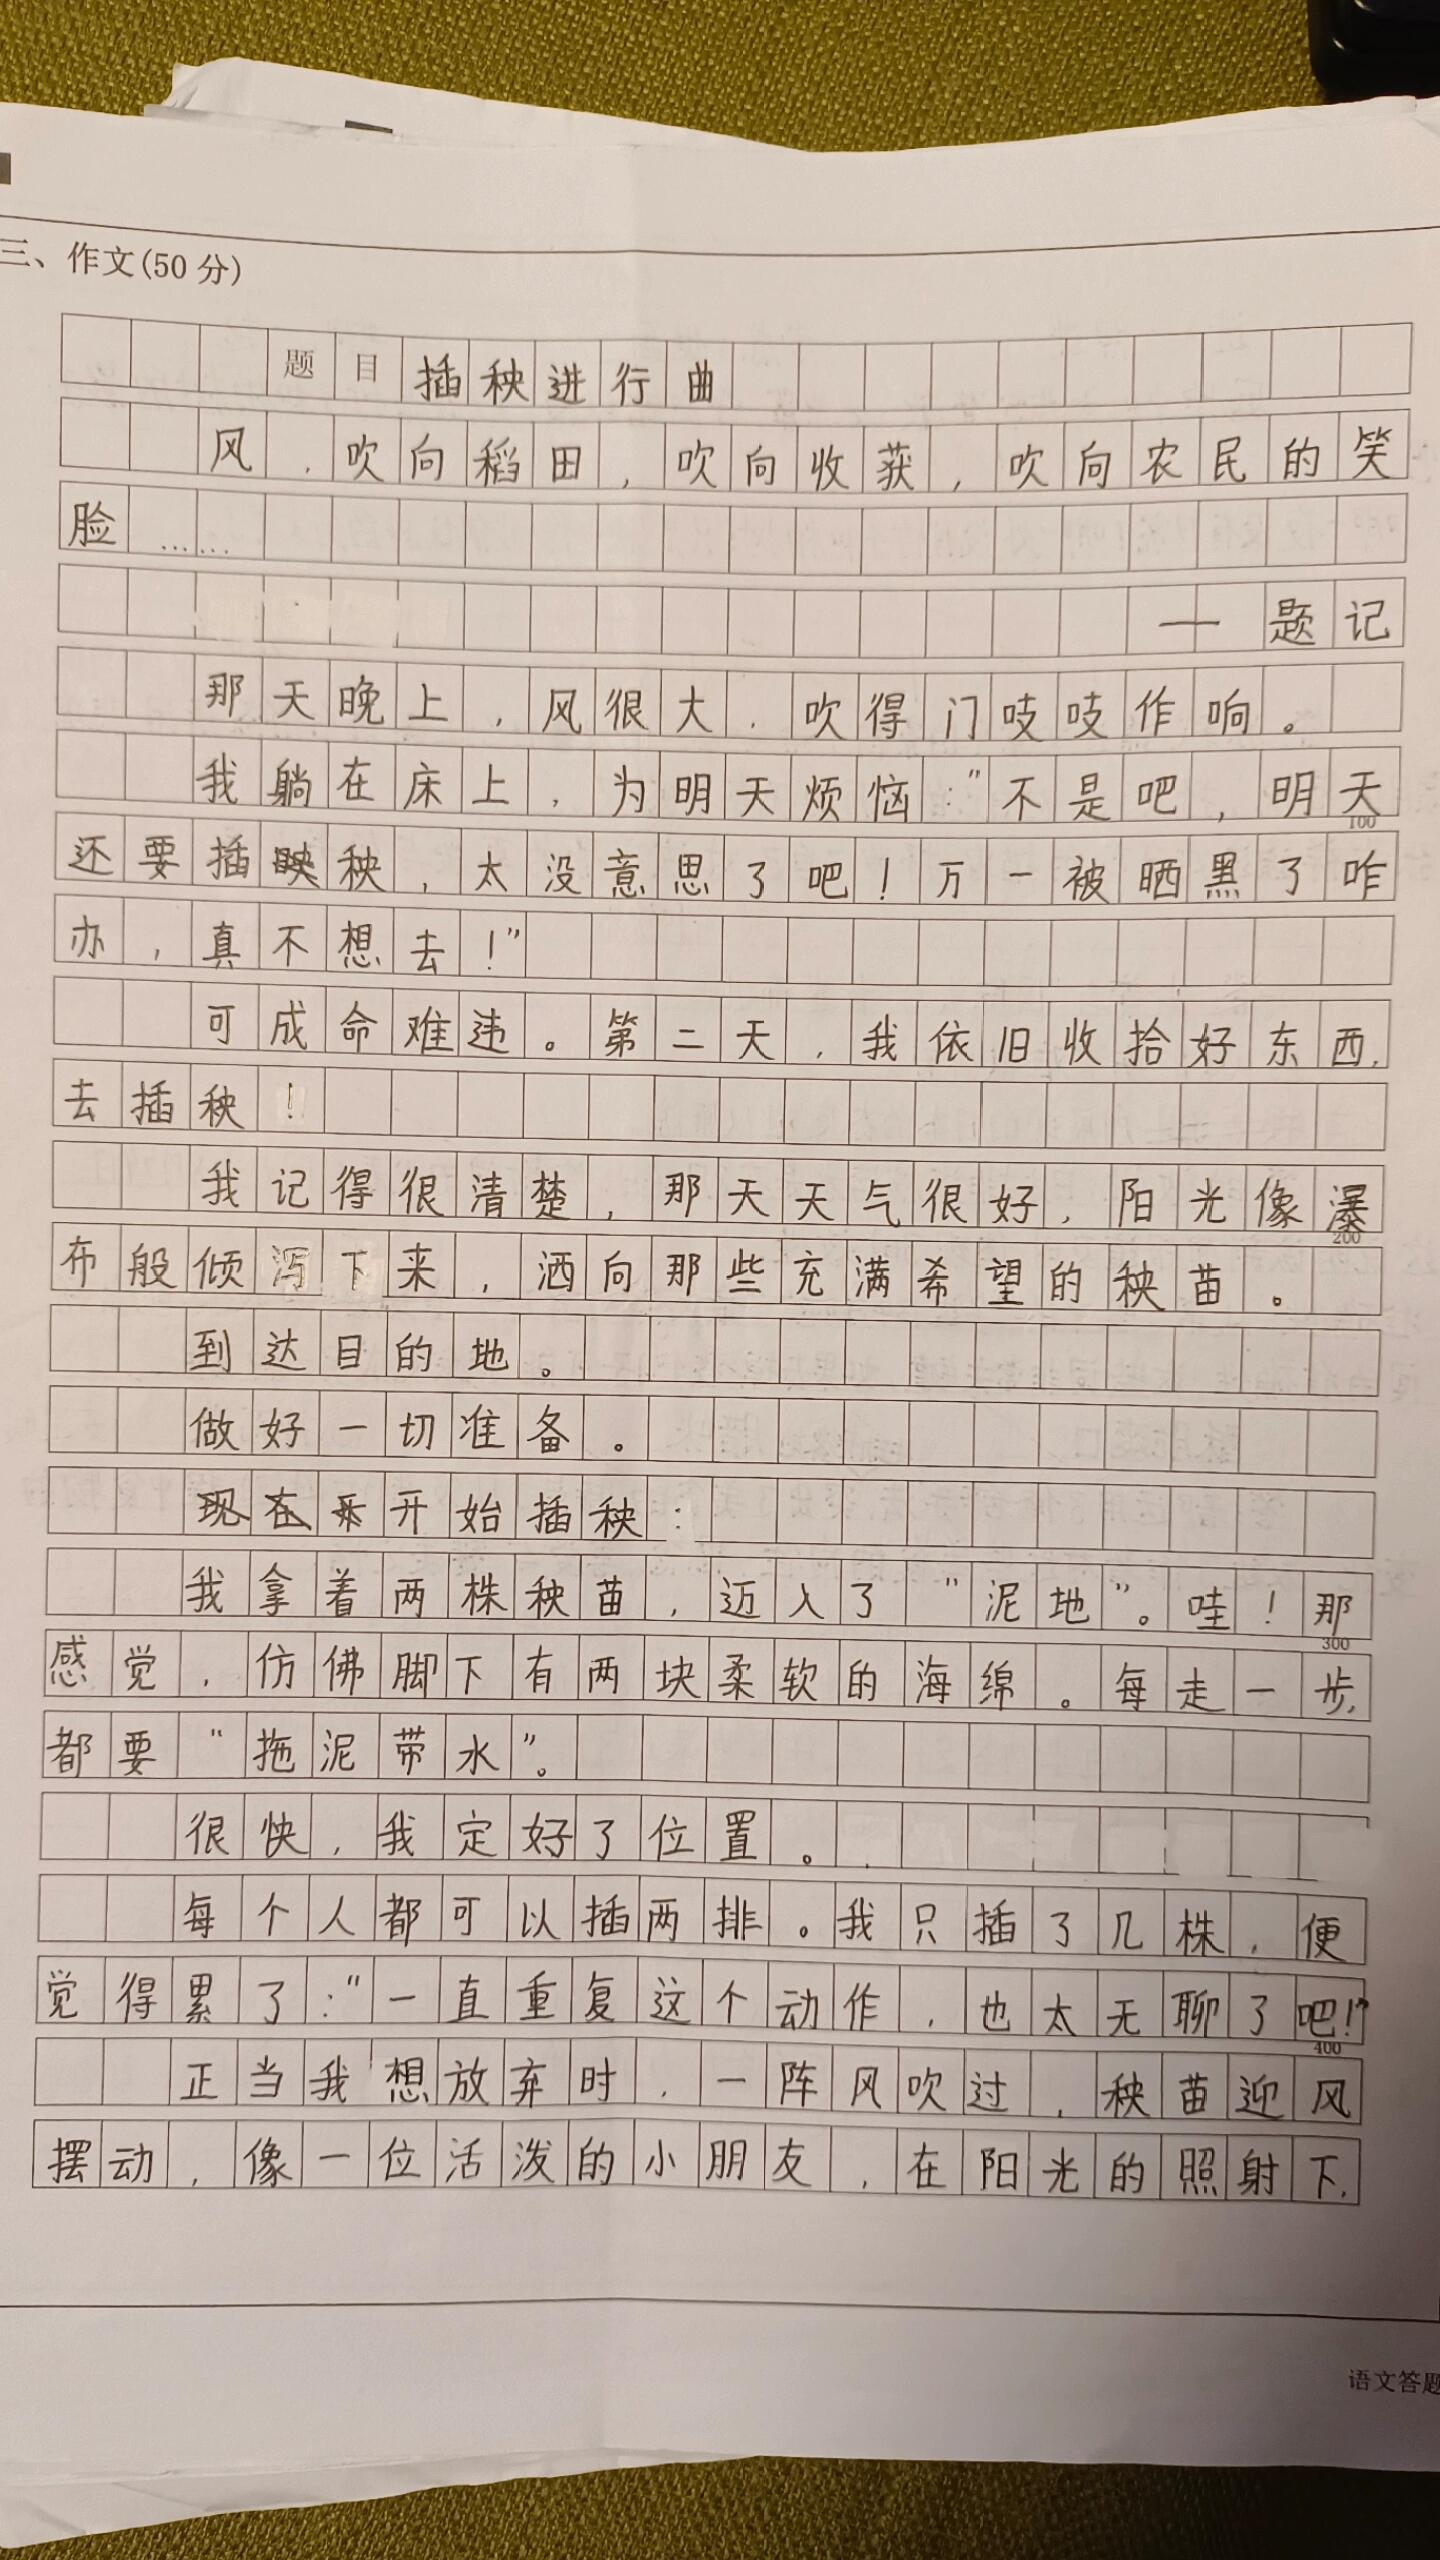 三、作文(50分)
题目插秧进行曲
风，吹向稻田，吹向收获，吹向农民的笑
脸……
——题记
那天晚上，风很大，吹得门吱吱作响。
我躺在床上，为明天烦恼："不是吧，明天
100
还要插秧，太没意思了吧！万一被晒黑了咋
办，真不想去！"
可成命难违。第二天，我依旧收拾好东西，
去插秧！
我记得很清楚，那天天气很好，阳光像瀑
200
布般倾泻下来，洒向那些充满希望的秧苗。
到达目的地。
做好一切准备。
开始插秧：
我拿着两株秧苗，迈入了"泥地"。哇！那
300
感觉，仿佛脚下有两块柔软的海绵。每走一步，
都要"拖泥带水"。
很快，我定好了位置。
每个人都可以插两排。我只插了几株，便
觉得累了："一直重复这个动作，也太无聊了吧！"
400
正当我想放弃时，一阵风吹过，秧苗迎风
摆动，像一位活泼的小朋友，在阳光的照射下，
语文答题